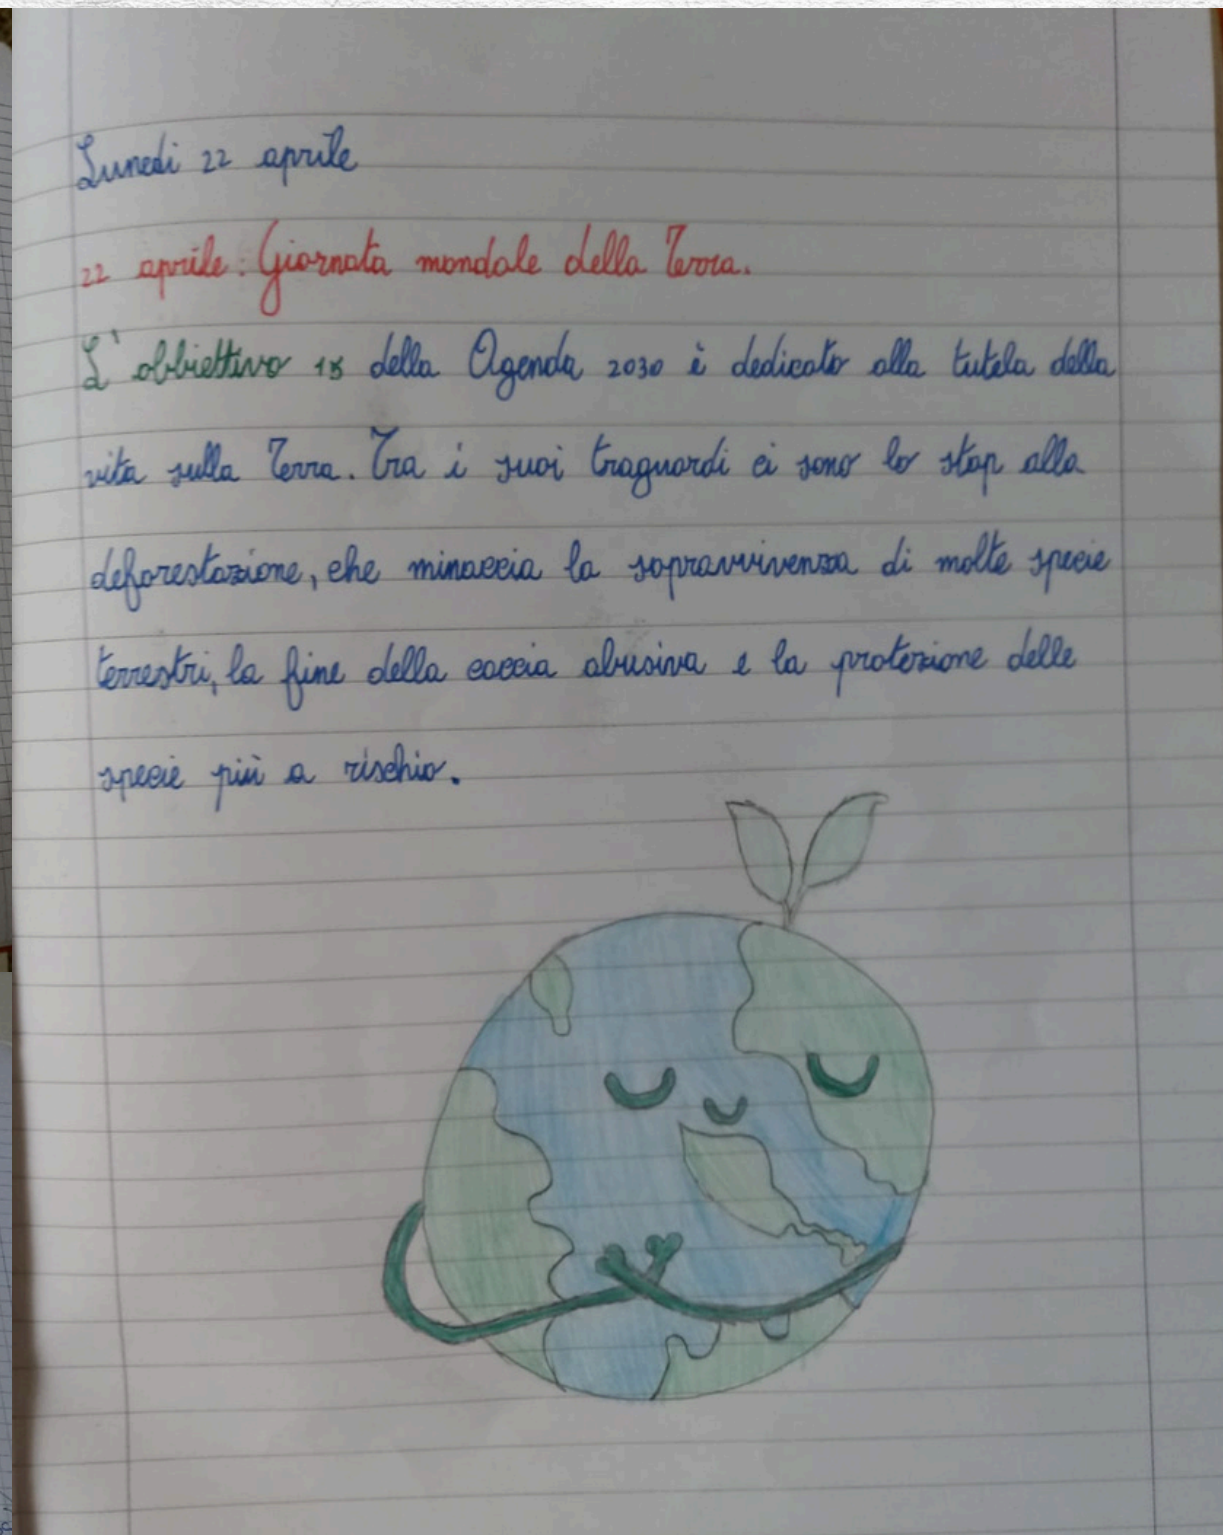 Lunedì 22 aprile
22 aprile: Giornata mondale della Terra.
L'obbiettivo 15 della Agenda 2030 è dedicato alla tutela della
vita sulla Terra. Tra i suoi traguardi ci sono lo stop alla
deforestazione, che minaccia la sopravvivenza di molte specie
terrestri, la fine della caccia abusiva e la protezione delle
specie più a rischio.